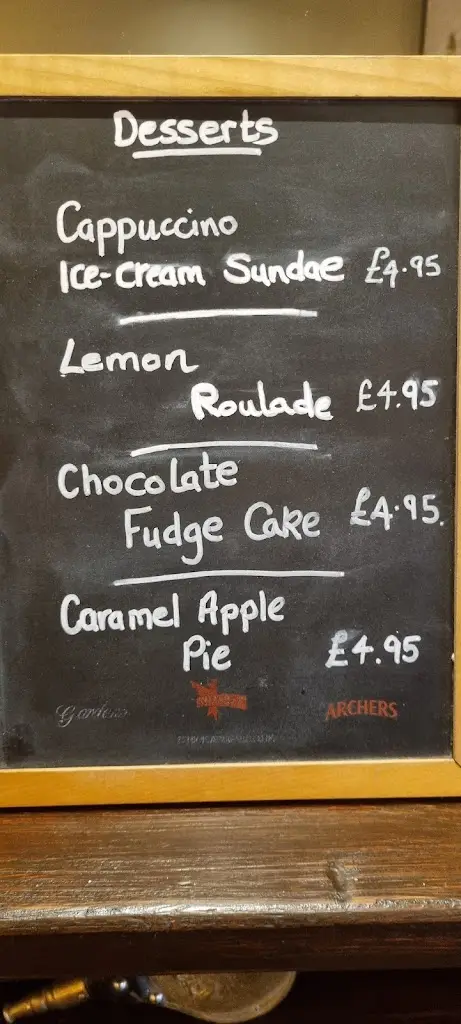 Desserts
Cappuccino
Ice-cream Sundae £4.95
Lemon
Roulade £4.95
Chocolate
Fudge Cake £4.95.
Caramel Apple
Pie £4.95
ARCHERS